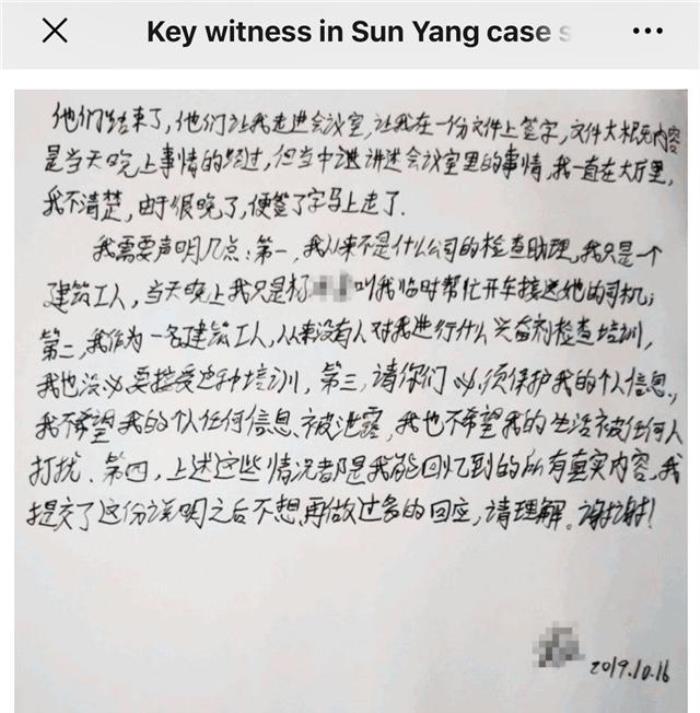 Key witness in Sun Yang case
他们结束了,他们让我走进会议室,让我在一份文件上签字,文件大概内容
是当天晚上事情的经过,但当中讲述会议室里的事情,我一直在大厅里,
我不清楚,由于很晚了,便签了字马上走了.
我需要声明几点:第一,我从来不是什么公司的检查助理,我只是一个
建筑工人,当天晚上我只是杨 叫我临时帮忙开车接送她的司机;
第二,我作为一名建筑工人,从来没有人对我进行什么兴奋剂检查培训,
我也没必要接受这种培训,第三,请你们必须保护我的个人信息,
我不希望我的个人任何信息被泄露,我也不希望我的生活被任何人
打扰.第四,上述这些情况都是我能回忆到的所有真实内容,我
提交了这份说明之后不想再做过多的回应,请理解。谢谢!
2019.10.16